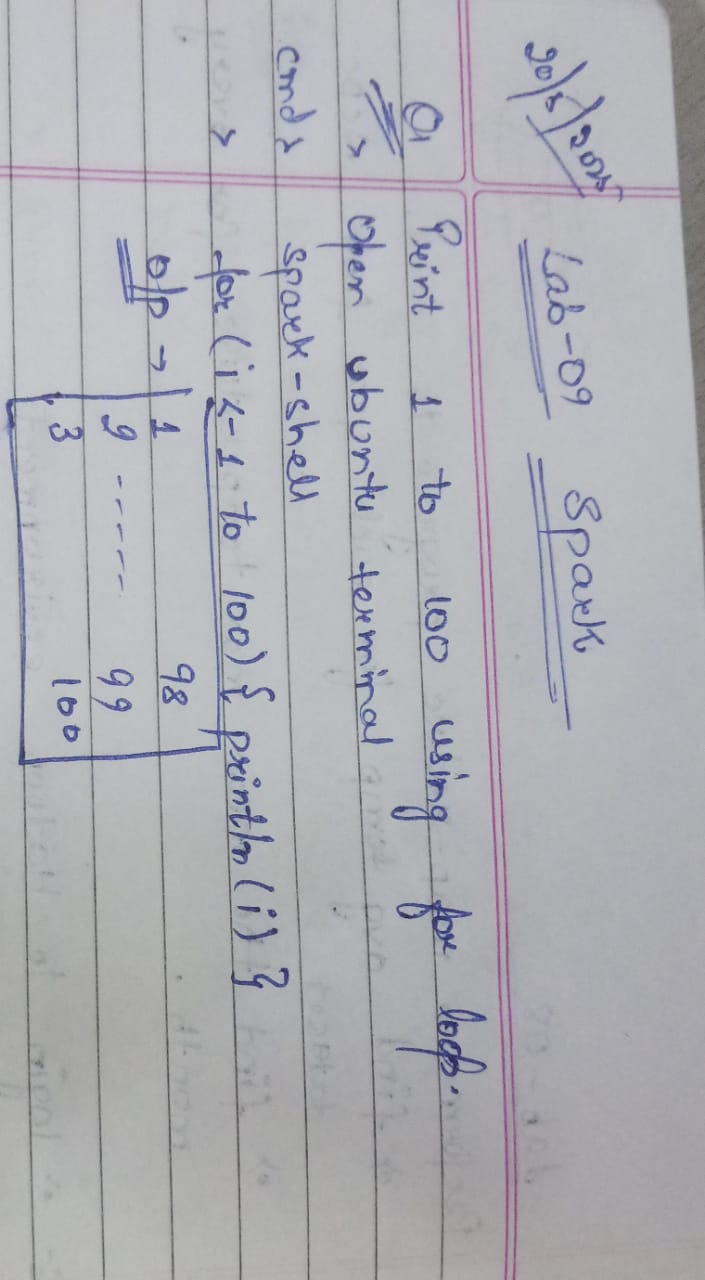 Lab-09 Spark
Q1 Print 1 to 100 using for loop.
> Open ubuntu terminal
cmd> spark-shell
> for (i <- 1 to 100) { println(i) }
o/p → 1 98
2 ----- 99
3 100